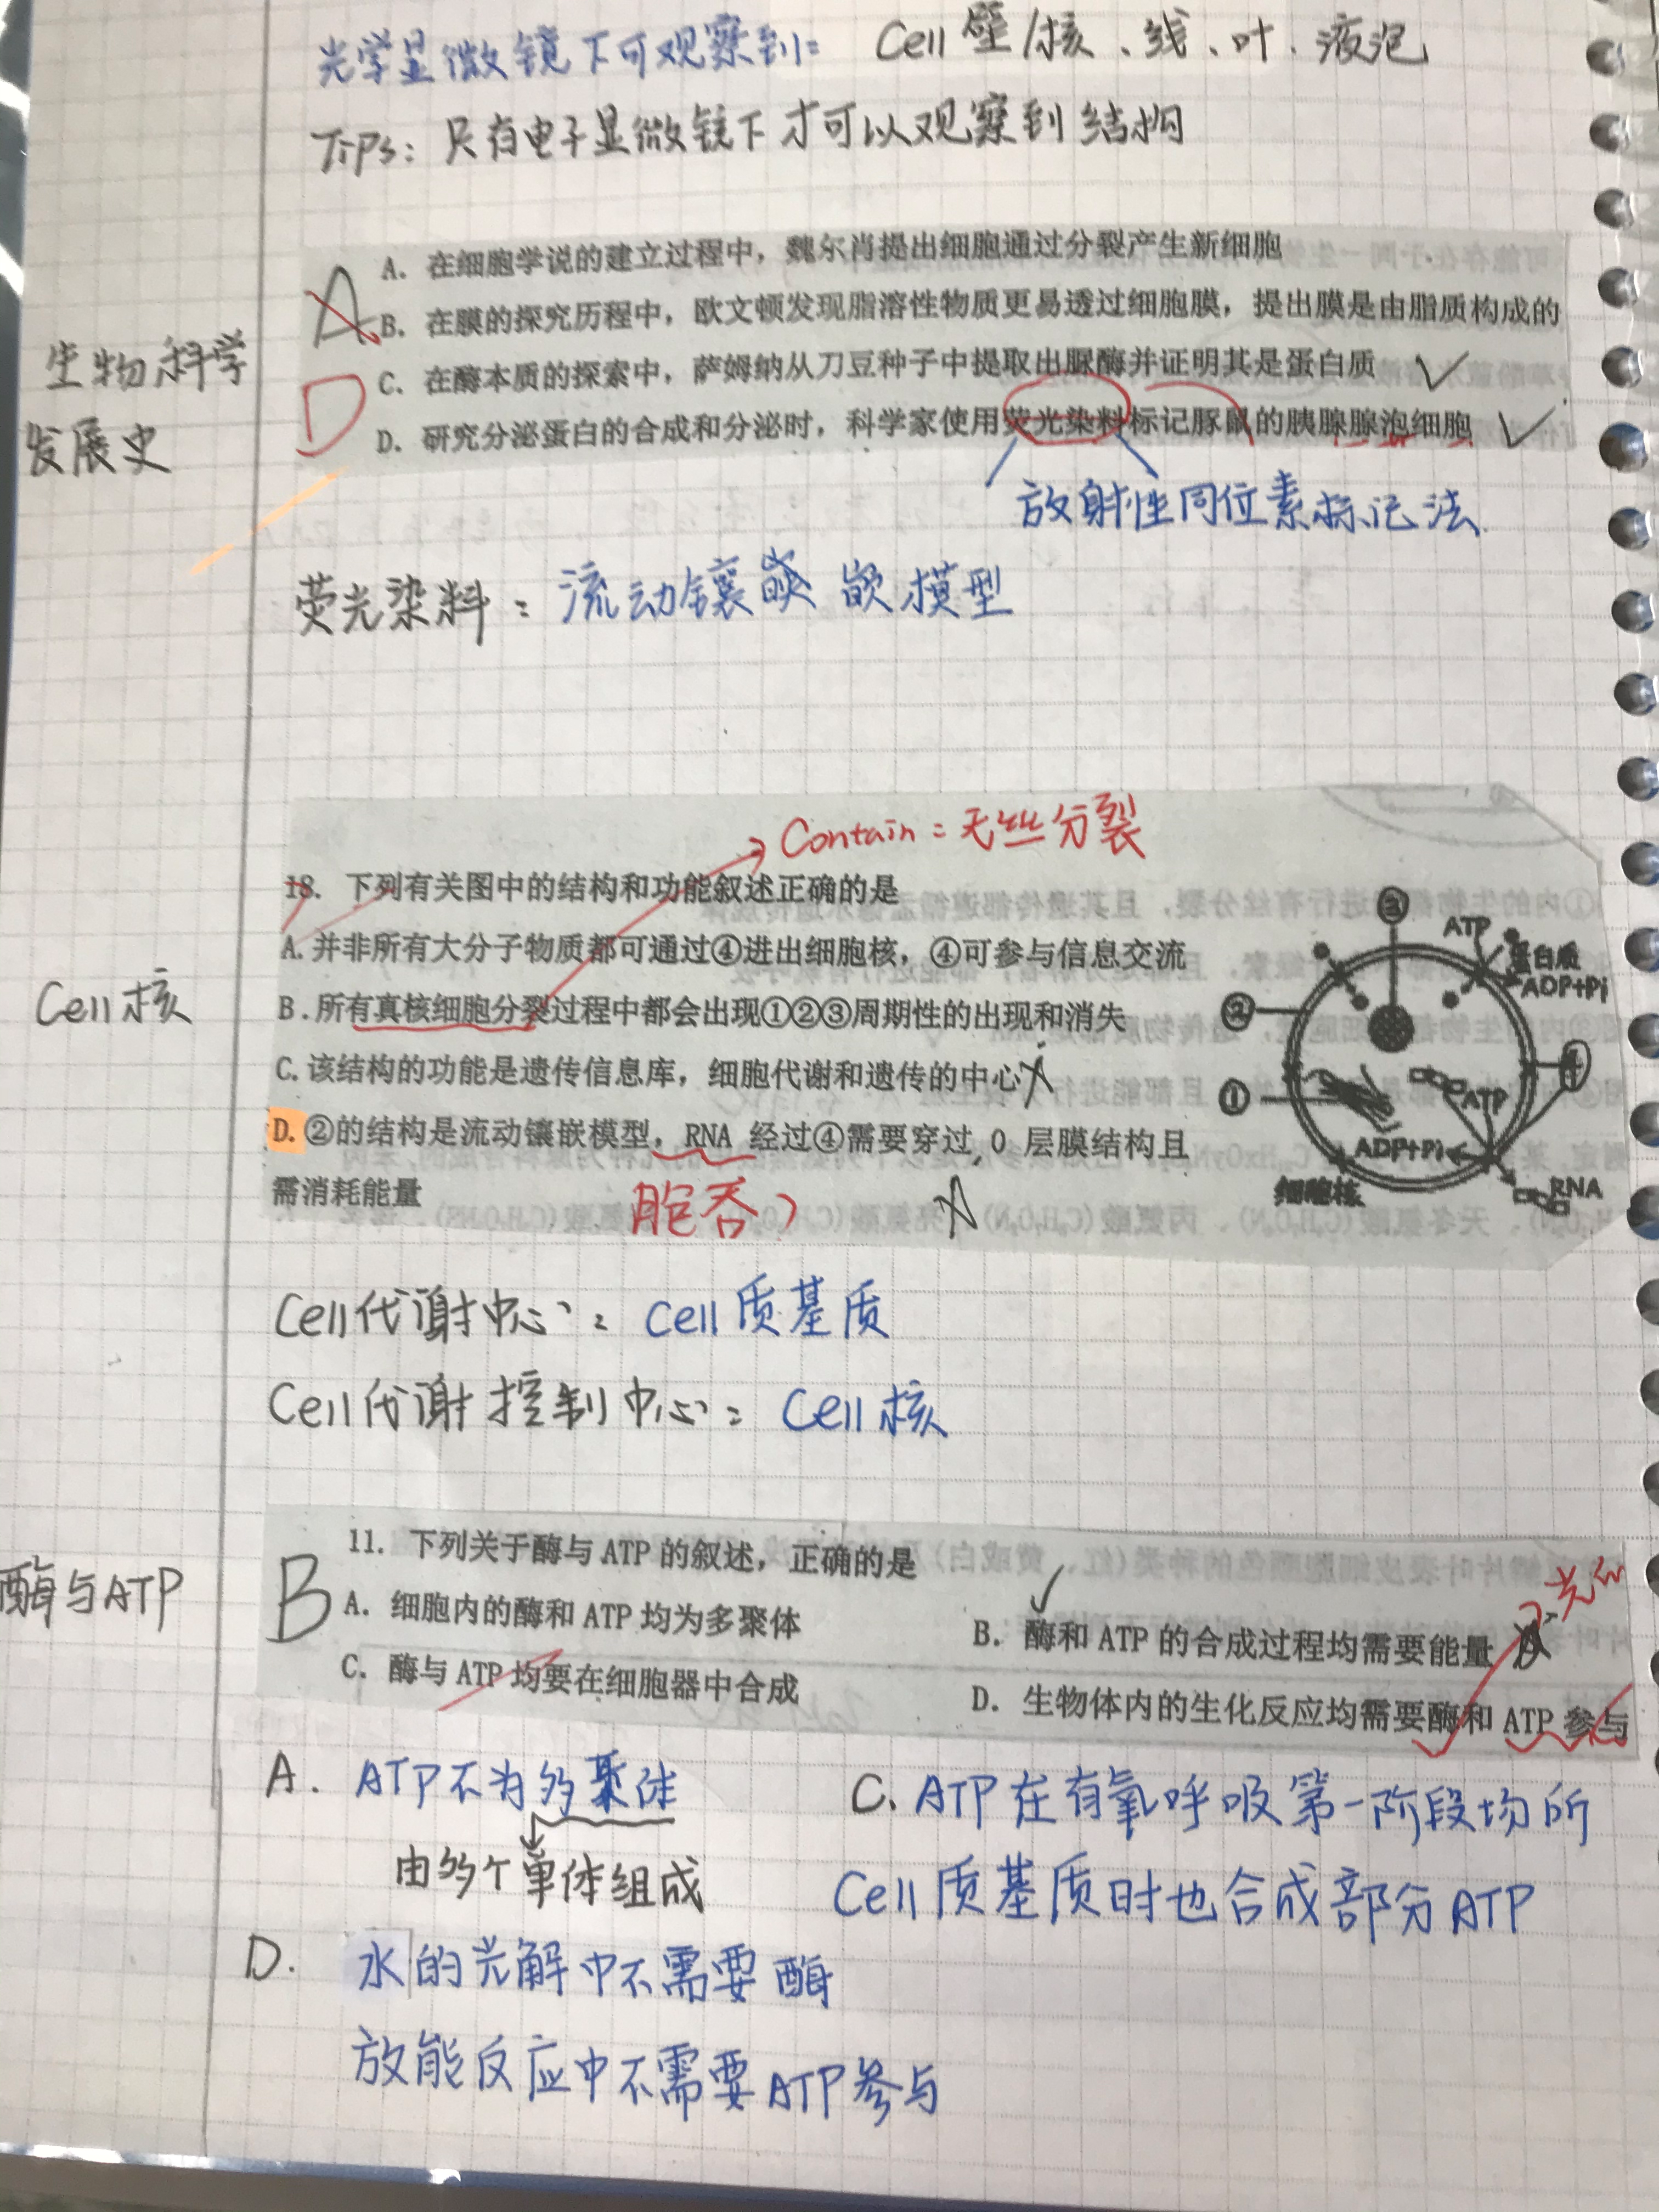 光学显微镜下可观察到: Cell壁/核、线、叶、液泡
Tips: 只有电子显微镜下才可以观察到结构
生物科学
发展史
A
D
A. 在细胞学说的建立过程中，魏尔肖提出细胞通过分裂产生新细胞
B. 在膜的探究历程中，欧文顿发现脂溶性物质更易透过细胞膜，提出膜是由脂质构成的
C. 在酶本质的探索中，萨姆纳从刀豆种子中提取出脲酶并证明其是蛋白质
D. 研究分泌蛋白的合成和分泌时，科学家使用荧光染料标记豚鼠的胰腺腺泡细胞
放射性同位素标记法
荧光染料: 流动镶嵌模型
Contain: 无丝分裂
Cell核
18. 下列有关图中的结构和功能叙述正确的是
A. 并非所有大分子物质都可通过④进出细胞核，④可参与信息交流
B. 所有真核细胞分裂过程中都会出现①②③周期性的出现和消失
C. 该结构的功能是遗传信息库，细胞代谢和遗传的中心
D. ②的结构是流动镶嵌模型，RNA 经过④需要穿过 0 层膜结构且
需消耗能量
胞吞
③
ATP
蛋白质
ADP+Pi
②
④
①
ATP
ADP+Pi
细胞核
RNA
Cell代谢中心: Cell质基质
Cell代谢控制中心: Cell核
酶与ATP
B
11. 下列关于酶与 ATP 的叙述，正确的是
A. 细胞内的酶和 ATP 均为多聚体
B. 酶和 ATP 的合成过程均需要能量
C. 酶与 ATP 均要在细胞器中合成
D. 生物体内的生化反应均需要酶和 ATP 参与
A. ATP不为多聚体
由多个单体组成
C. ATP在有氧呼吸第一阶段场所
Cell质基质时也合成部分ATP
D. 水的光解中不需要酶
放能反应中不需要ATP参与